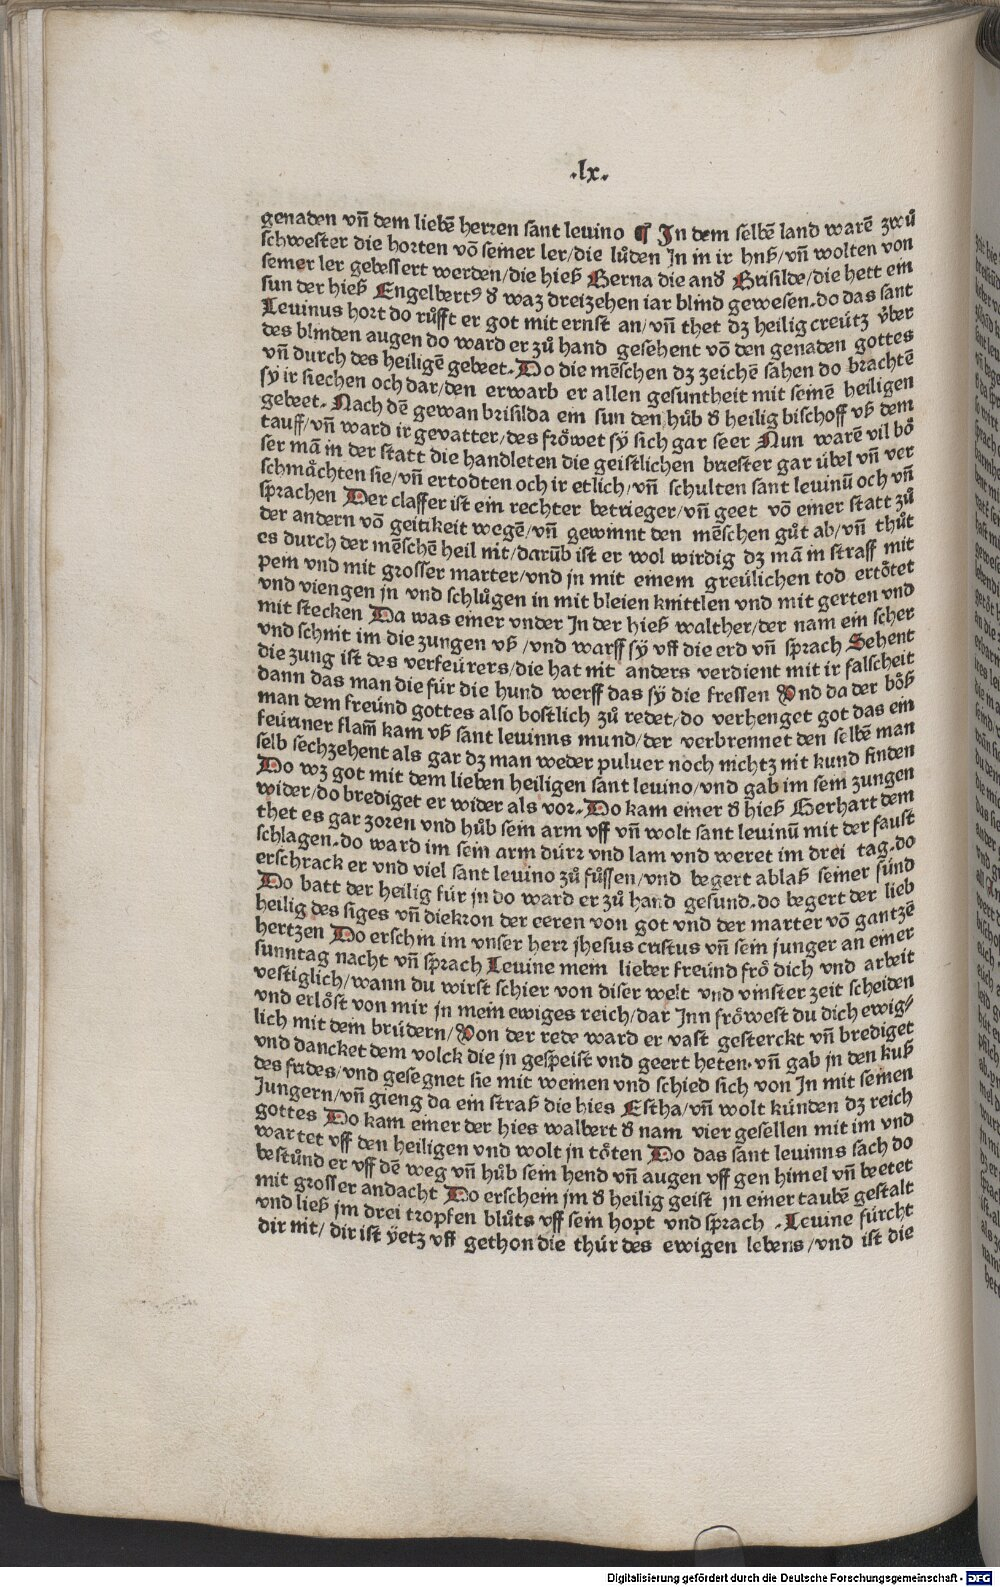 .lx.
genaden vn̄ dem liebē herren sant leuino ¶ In dem selbē land warē zwů
schwester die horten vō seiner ler/die lůden In in ir huß/vn̄ wolten von
seiner ler gebessert werden/die hieß Berna die and̛ Brisilde/die hett ein
sun der hieß Engelbertꝰ d̛ waz dreizehen iar blind gewesen.do das sant
Leuinus hort do růfft er got mit ernst an/vn̄ thet dz heilig creütz v̈ber
des blinden augen do ward er zů hand gesehent vō den genaden gottes
vn̄ durch des heiligē gebeet.Do die mēschen dz zeichē sahen do brachtē
sÿ ir siechen och dar/den erwarb er allen gesuntheit mit seinē heiligen
gebeet. Nach dē gewan brisilda ein sun den hůb d̛ heilig bischoff vß dem
tauff/vn̄ ward ir gevatter/des fröwet sÿ sich gar seer Nun warē vil bö
ser mā in der statt die handleten die geistlichen briester gar übel vn̄ ver
schmächten sie/vn̄ ertodten och ir etlich/vn̄ schulten sant leuinū och vn̄
sprachen Der claffer ist ein rechter betrieger/vn̄ geet vō einer statt zů
der andern vō geitikeit wegē/vn̄ gewinnt den mēschen gůt ab/vn̄ thůt
es durch der mēschē heil nit/darūb ist er wol wirdig dz mā in straff mit
pein vnd mit grosser marter/vnd jn mit einem greülichen tod ertötet
vnd viengen jn vnd schlůgen in mit bleien knittlen vnd mit gerten vnd
mit stecken Da was einer vnder In der hieß walther/der nam ein scher
vnd schnit im die zungen vß/vnd warff sÿ vff die erd vn̄ sprach Sehent
die zung ist des verfeürers/die hat nit anders verdient mit ir falscheit
dann das man die für die hund werff das sÿ die fressen Vnd da der böß
man dem freünd gottes also bostlich zů redet/do verhenget got das ein
feüriner flam̄ kam vß sant leuinus mund/der verbrennet den selbē man
selb sechzehent als gar dz man weder puluer noch nichtz nit kund finden
Do wz got mit dem lieben heiligen sant leuino/vnd gab im sein zungen
wider/do brediget er wider als vor.Do kam einer d̛ hieß Gerhart dem
thet es gar zoren vnd hůb sein arm vff vn̄ wolt sant leuinū mit der faust
schlagen.do ward im sein arm dürr vnd lam vnd weret im drei tag.do
erschrack er vnd viel sant leuino zů füssen/vnd begert ablaß seiner sünd
Do batt der heilig für in do ward er zů hand gesund.do begert der lieb
heilig des siges vn̄ die kron der eeren von got vnd der marter vō gantzē
hertzen Do erschin im vnser herr jhesus cristus vn̄ sein junger an einer
sunntag nacht vn̄ sprach Leuine mein lieber freünd frö dich vnd arbeit
vestiglich/wann du wirst schier von diser welt vnd vinster zeit scheiden
vnd erlöst von mir jn mein ewiges reich/dar Inn fröwest du dich ewig⸗
lich mit dein brüdern/Von der rede ward er vast gesterckt vn̄ brediget
vnd dancket dem volck die jn gespeist vnd geert heten.vn̄ gab jn den kuß
des frides/vnd gesegnet sie mit weinen vnd schied sich von In mit seinen
Jungern/vn̄ gieng da ein straß die hies Estha/vn̄ wolt künden dz reich
gottes Do kam einer der hies walbert d̛ nam vier gesellen mit im vnd
wartet vff den heiligen vnd wolt jn töten Do das sant leuinns sach do
bestůnd er vff dē weg vn̄ hůb sein hend vn̄ augen vff gen himel vn̄ beetet
mit grosser andacht Do erschein jm d̛ heilig geist jn einer taubē gestalt
vnd ließ jm drei tropfen blůts vff sein hopt vnd sprach .Leuine fürcht
dir nit/ dir ist ÿetz vff gethon die thür des ewigen lebens/vnd ist die
Digitalisierung gefördert durch die Deutsche Forschungsgemeinschaft - DFG